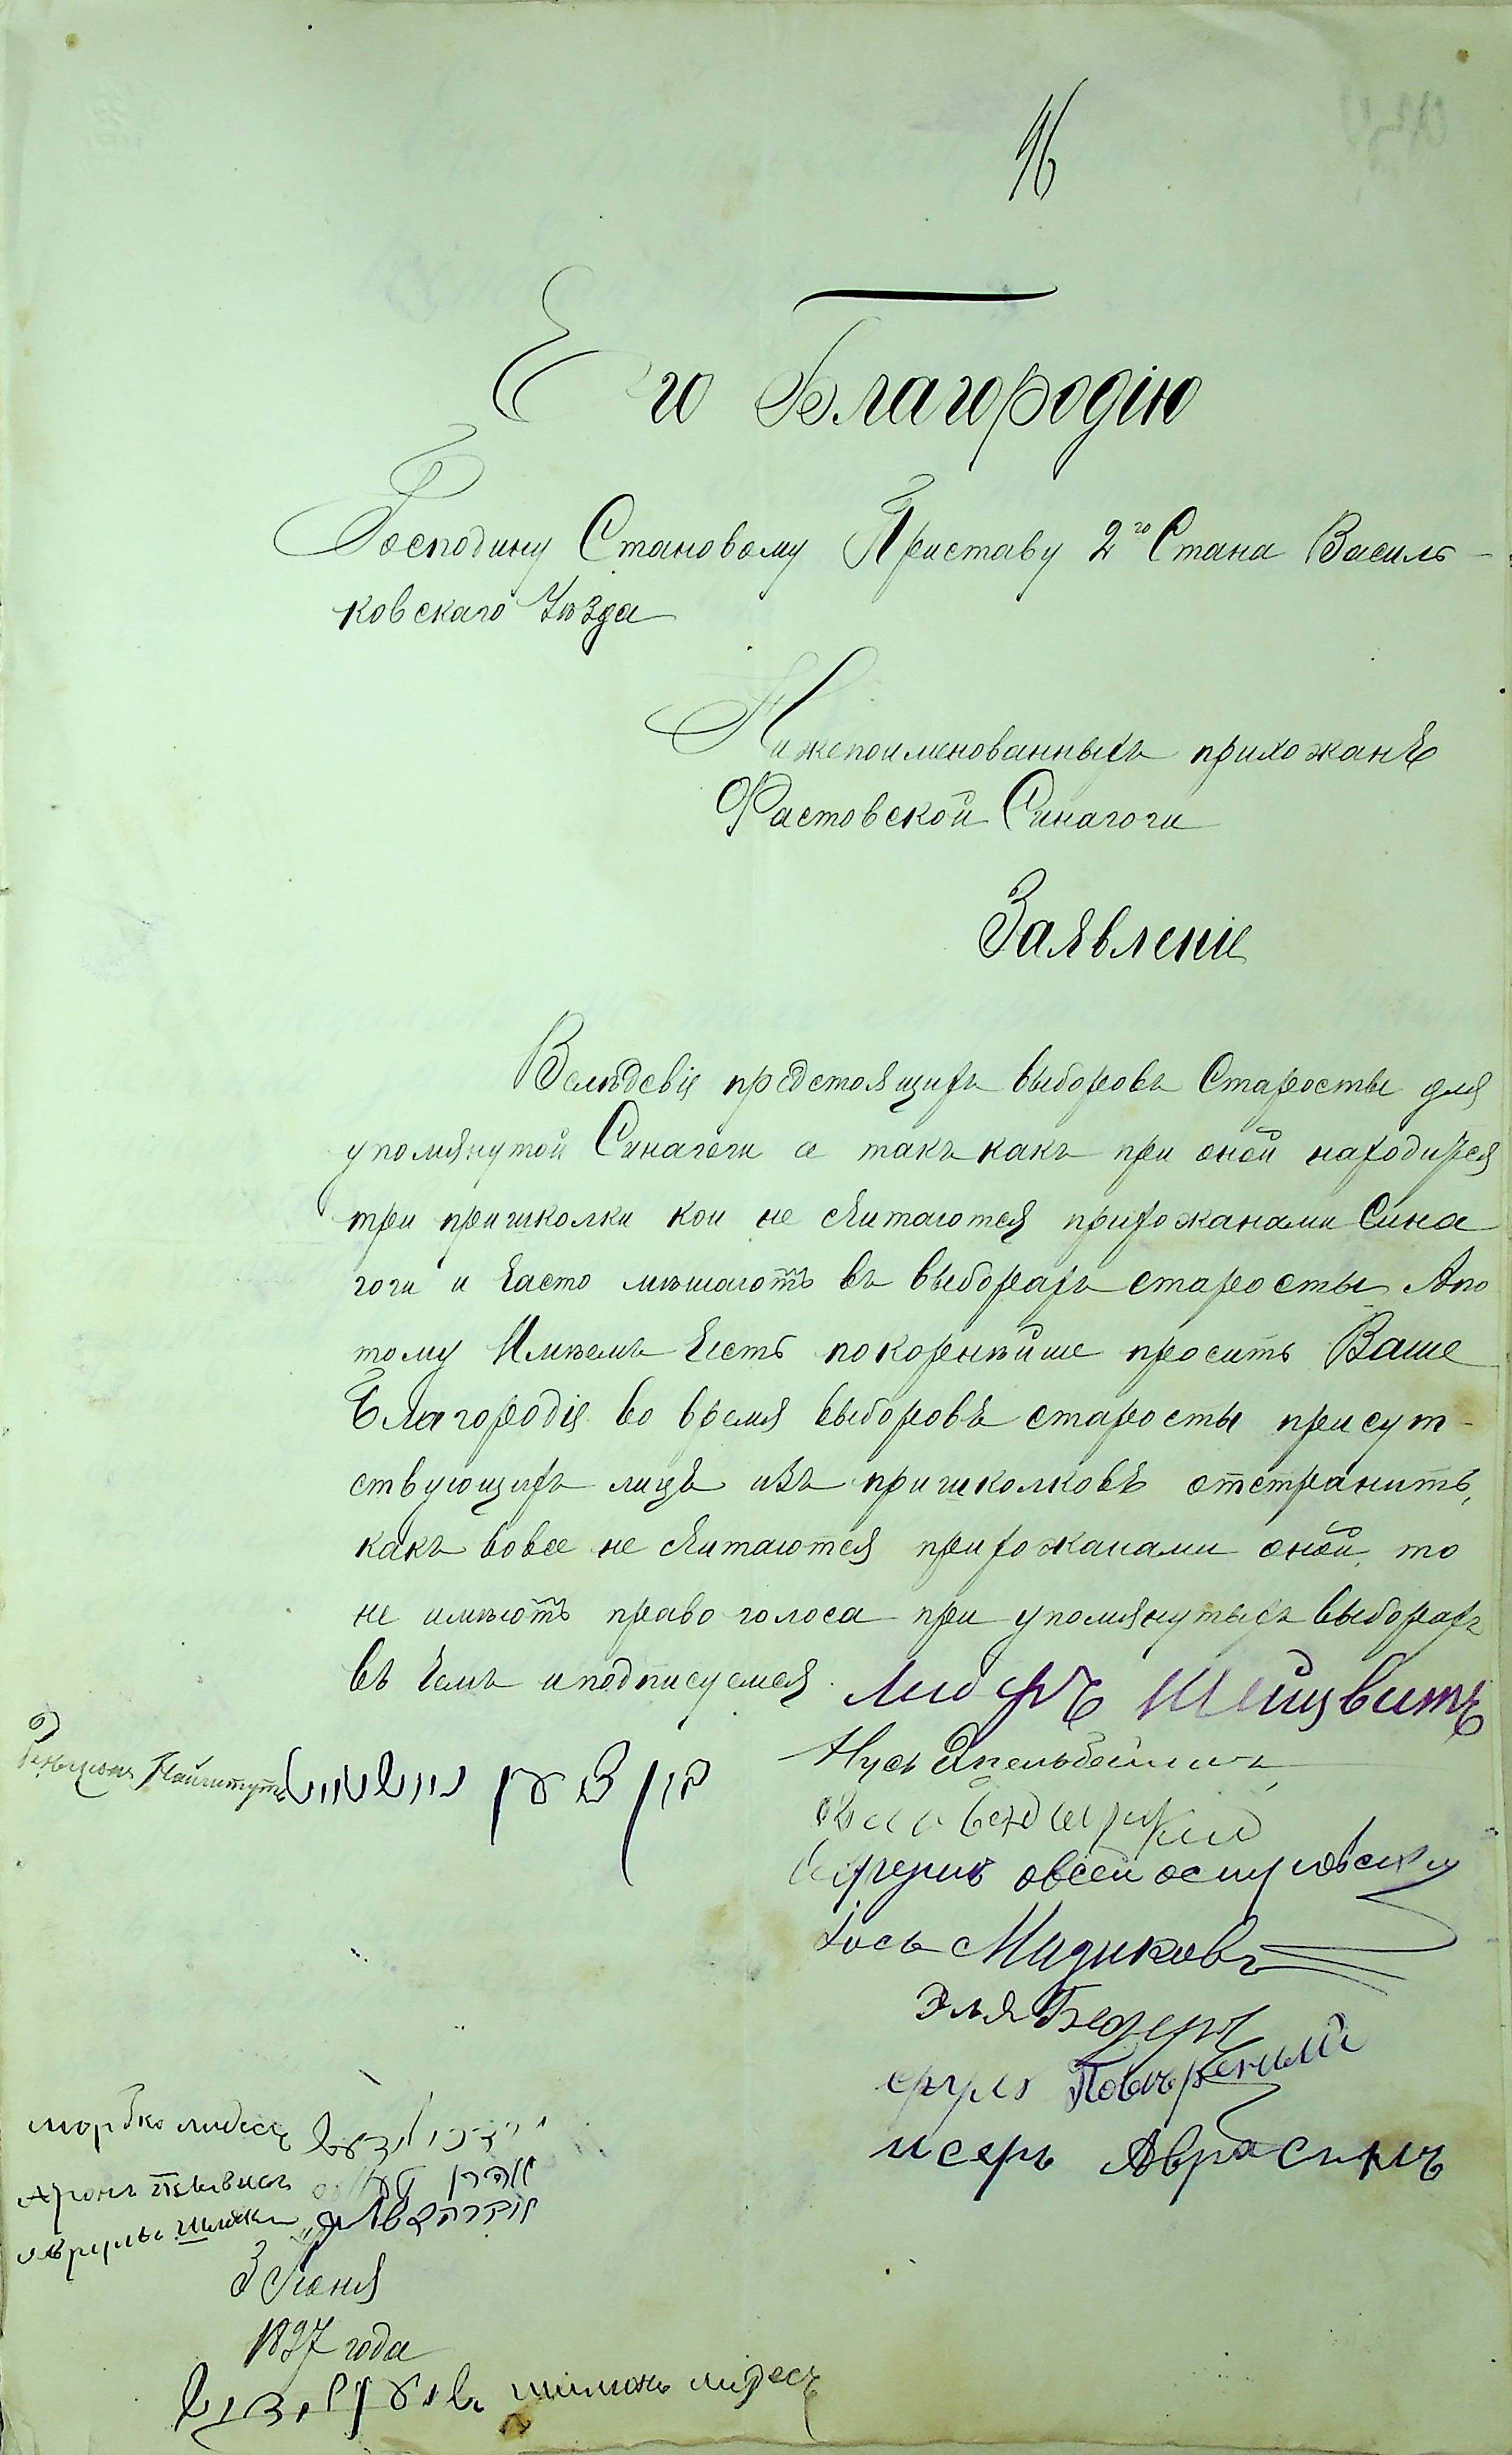 46
Его Благородію
Господину Становому Приставу 2го Стана Василь-
ковскаго Уѣзда
Нижепоименованныхъ прихожанъ
Фастовской Синагоги
Заявленіе
Вслѣдсвіе предстоящихъ выборовъ Старосты для
упомянутой Синагоги а такъ какъ при оной находится
три пришколки кои не считаются прихожанами Сина
гоги и часто мѣшаютъ въ выборахъ старосты Апо
тому Имѣемъ честь покорнѣйше просить Ваше
Благородіе во время выборовъ старосты присут-
ствующихъ лицъ изъ пришколковъ отстранить,
какъ вовсе не считаются прихожанами оной, то
не имѣютъ право голоса при упомянутыхъ выборахъ
въ чемъ и подписуемся Лейзеръ
Бенціонъ בן ציון
Нусь
овсей
Іось Мазиковъ
Эля
сруль
исеръ Аврасинъ
мордко מרדכי
Аронъ אהרן
Аврумъ אברהם
3 Іюня
1897 года
שמעון шимонъ